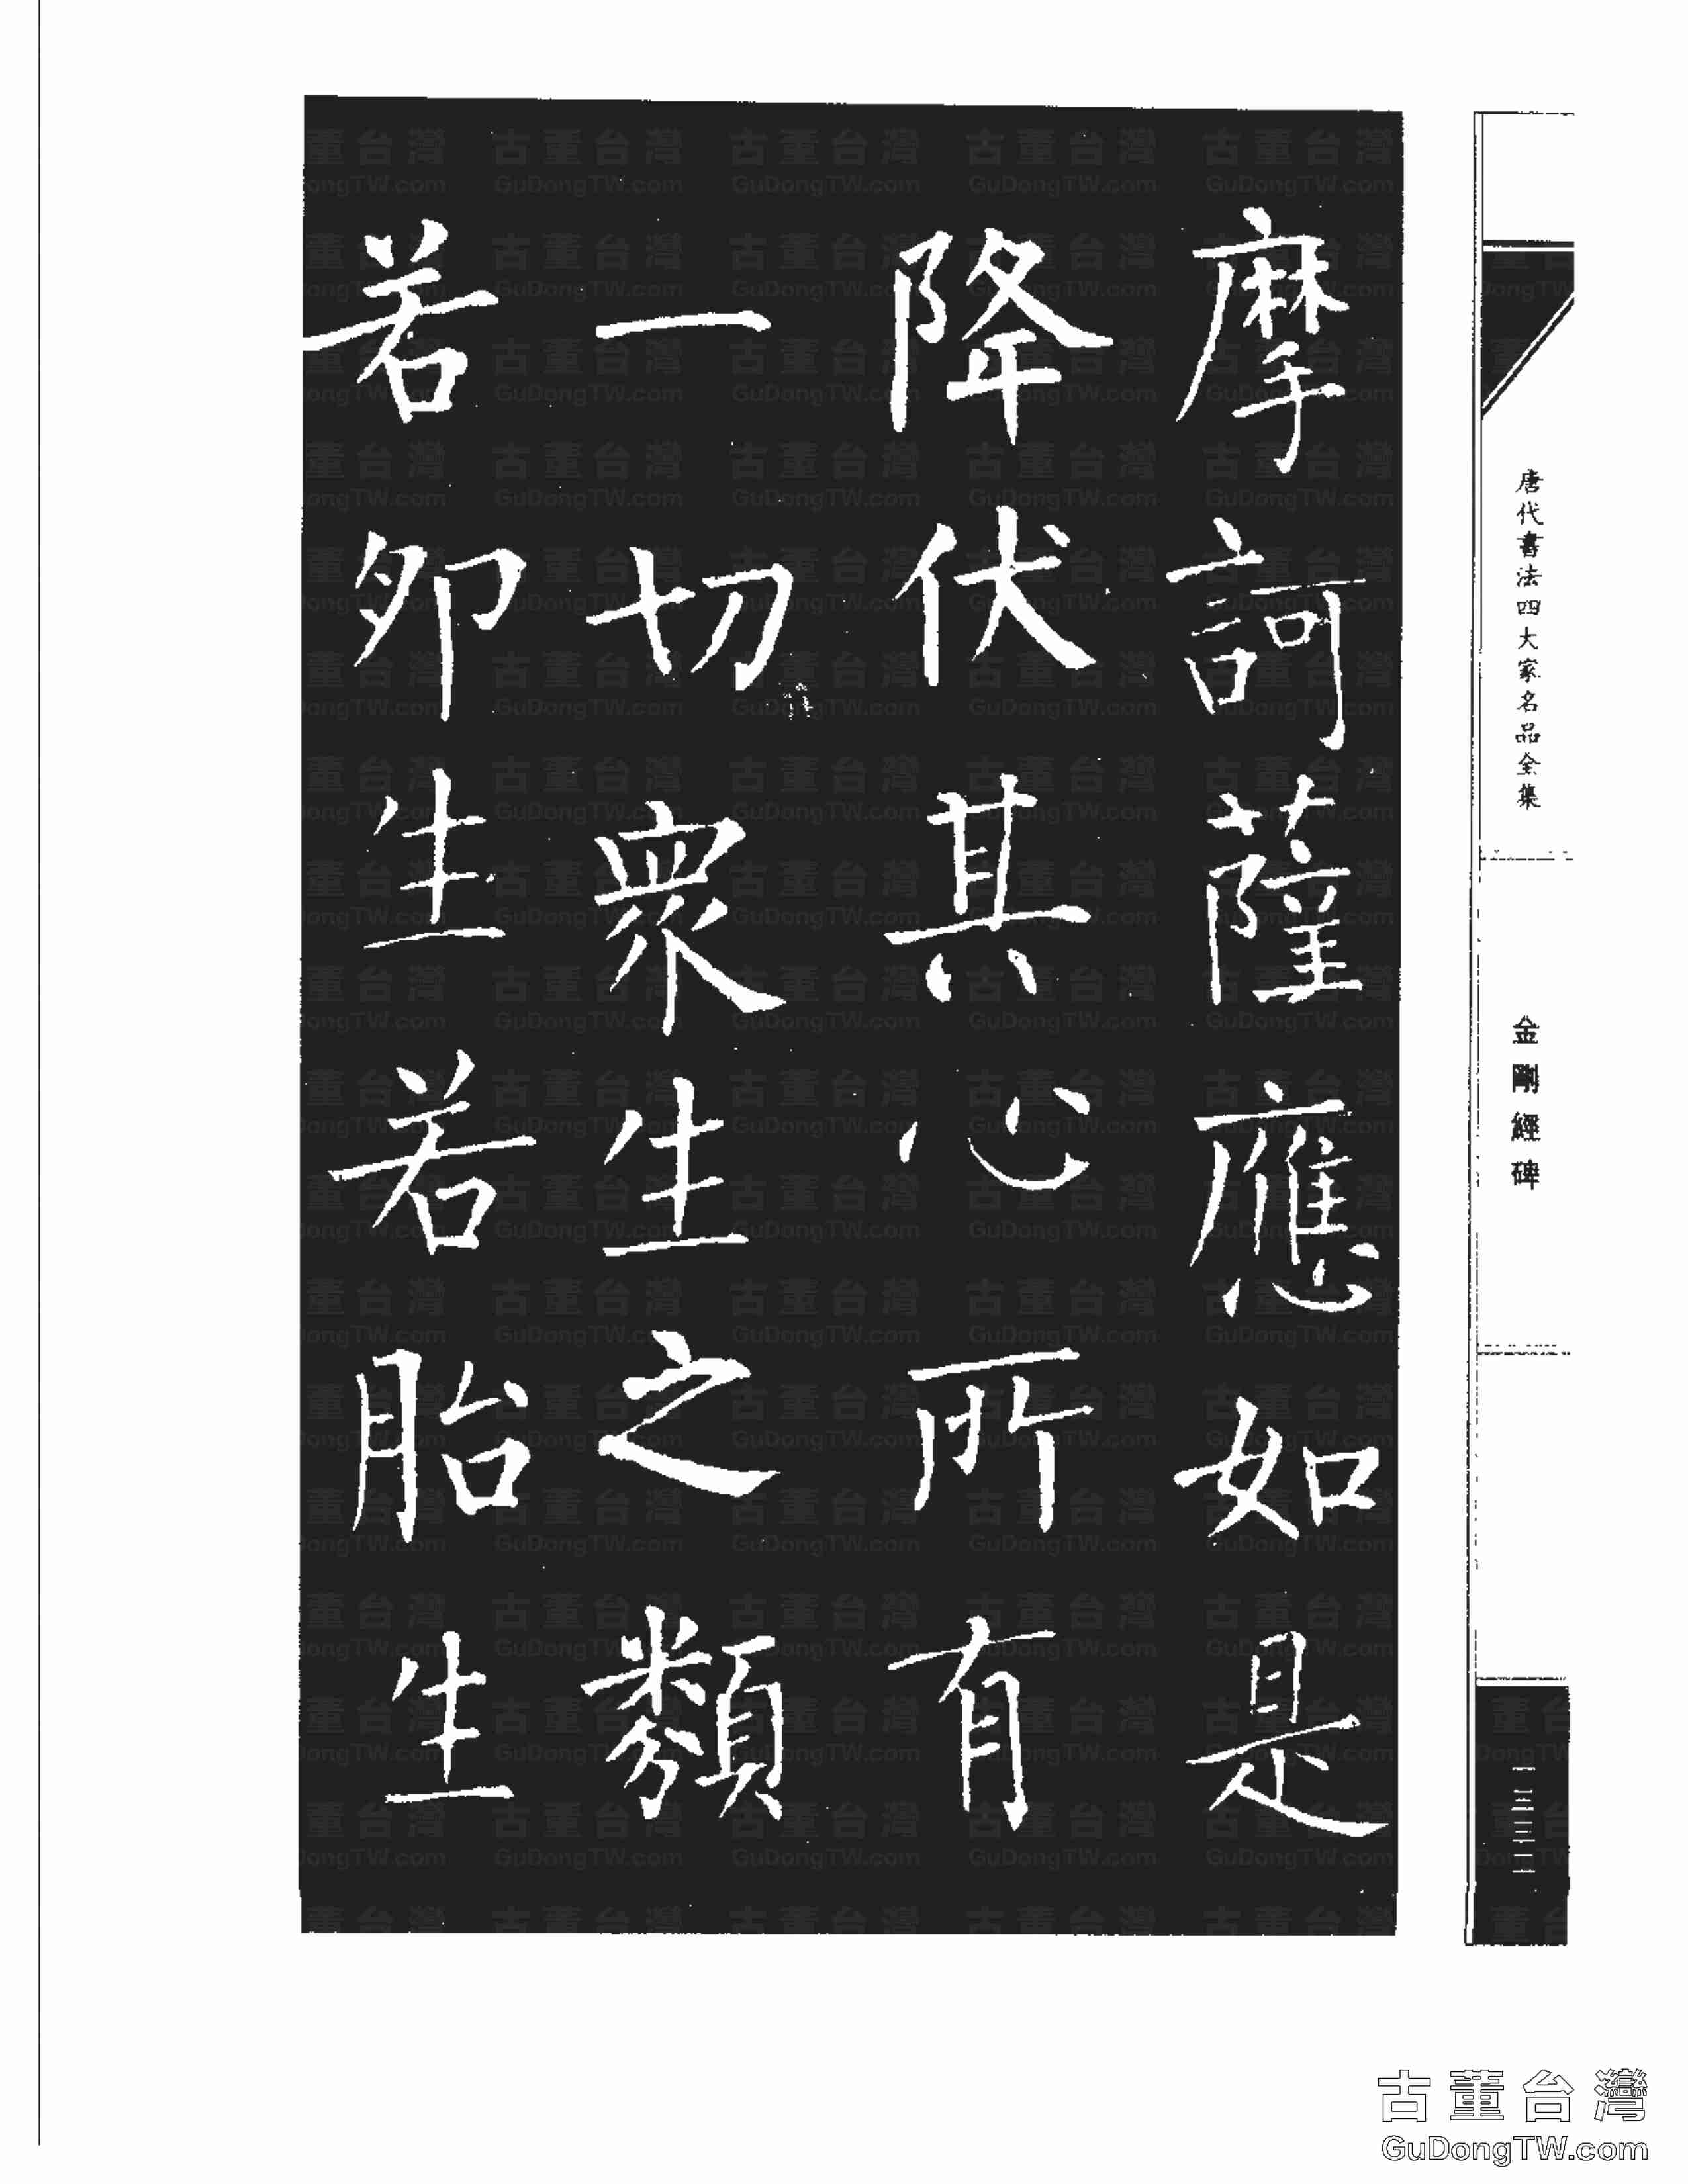 摩訶薩應如是
降伏其心所有
一切衆生之類
若卵生若胎生
唐代書法四大家名品全集
金剛經碑
古董台灣
GuDongTW.com